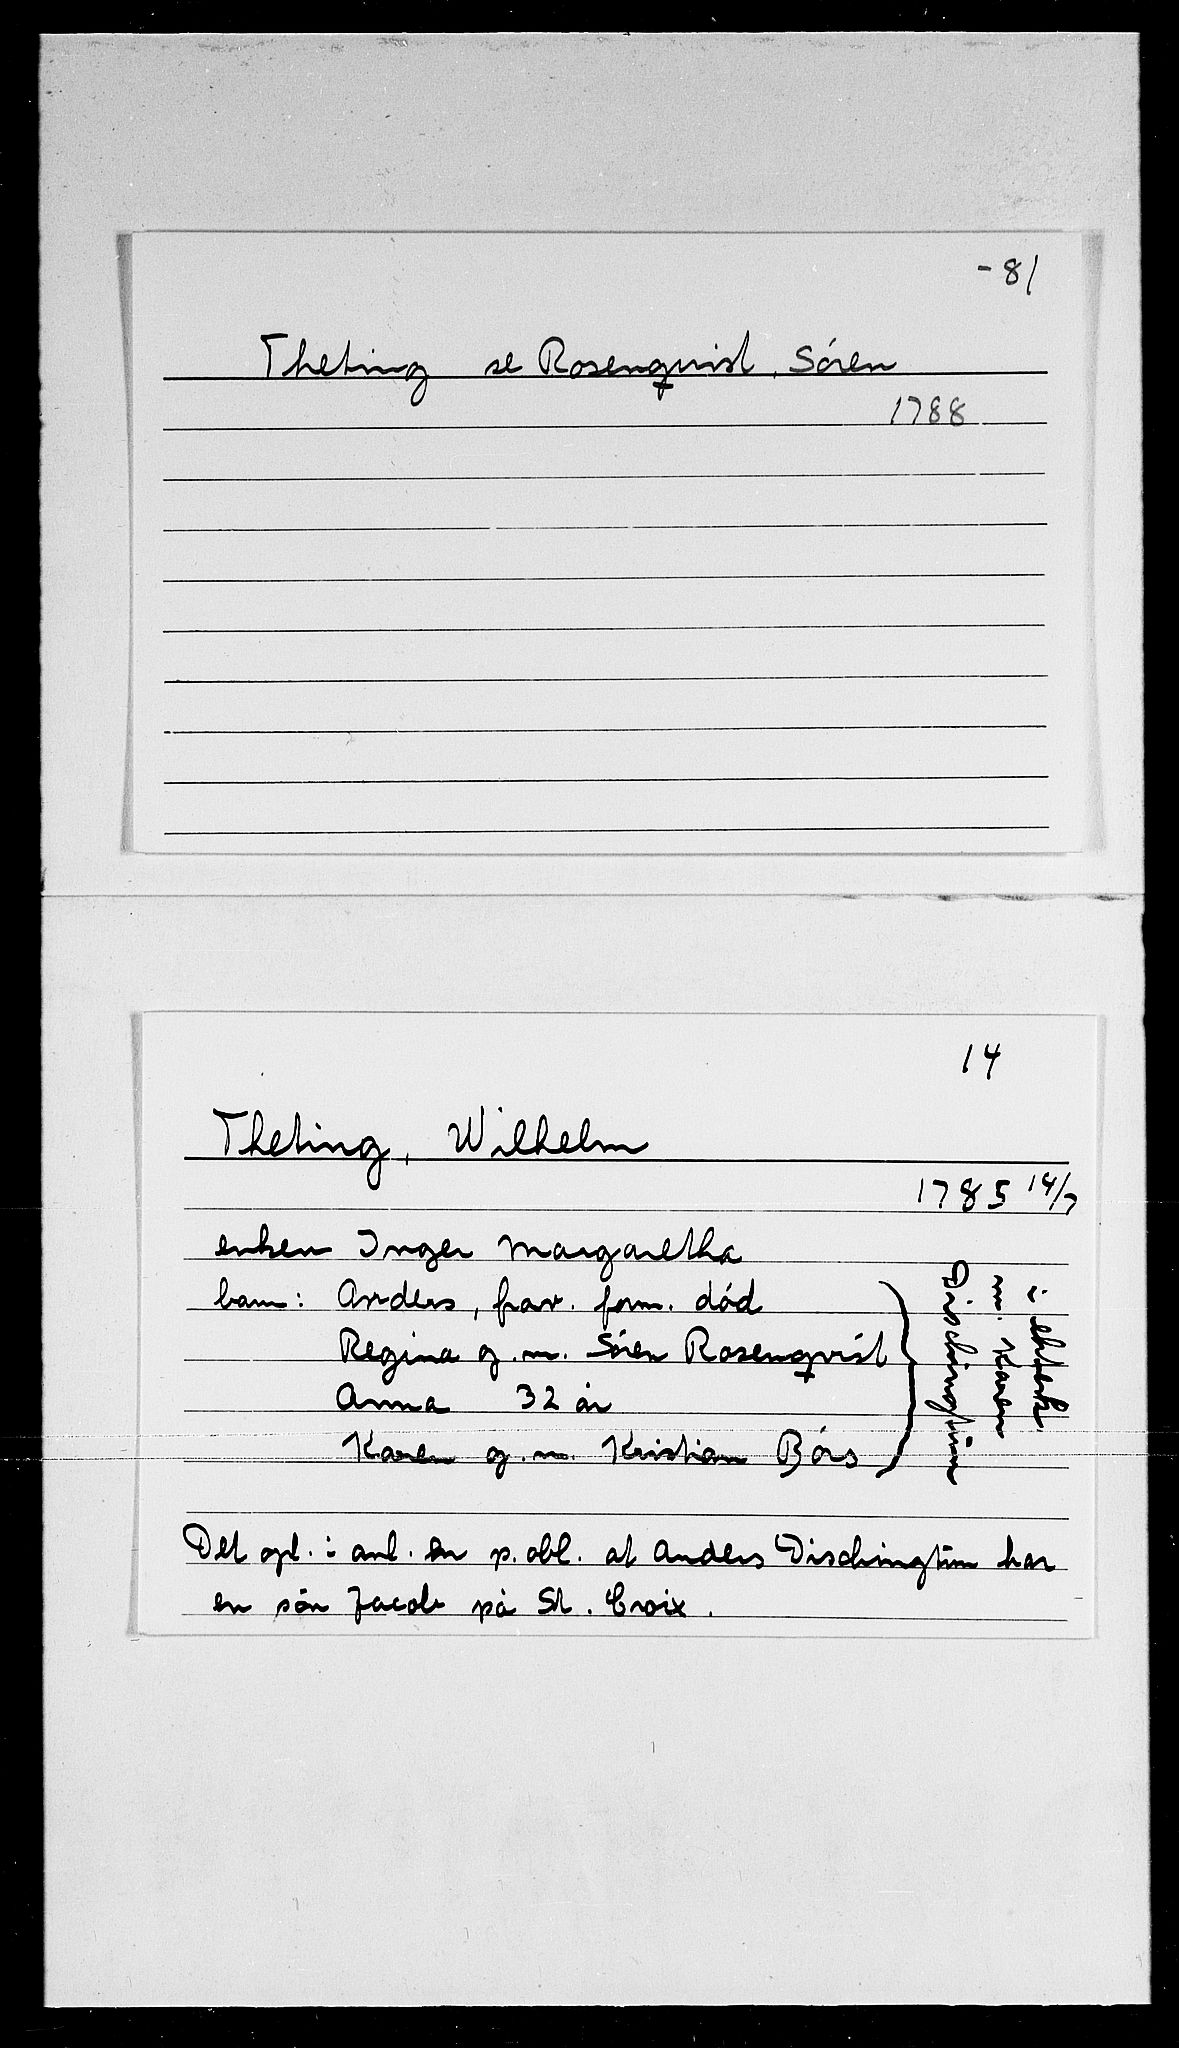 -81
Theting se Rosenqvist, Sören
1788
14
Theting, Wilhelm
1785 14/7
enken Inger Margaretha
barn: Anders, frav. form. död
Regina g.m. Sören Rosenqvist
Anna 32 år
Karen g.m. Kristian Börs
i ektesk.
m. Karen
Dischingtun
Det opl. i anl. en p. obl. at Anders Dischingtun har
en sön Jacob på St. Croix.